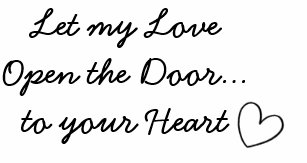 Let my Love
Open the Door...
to your Heart